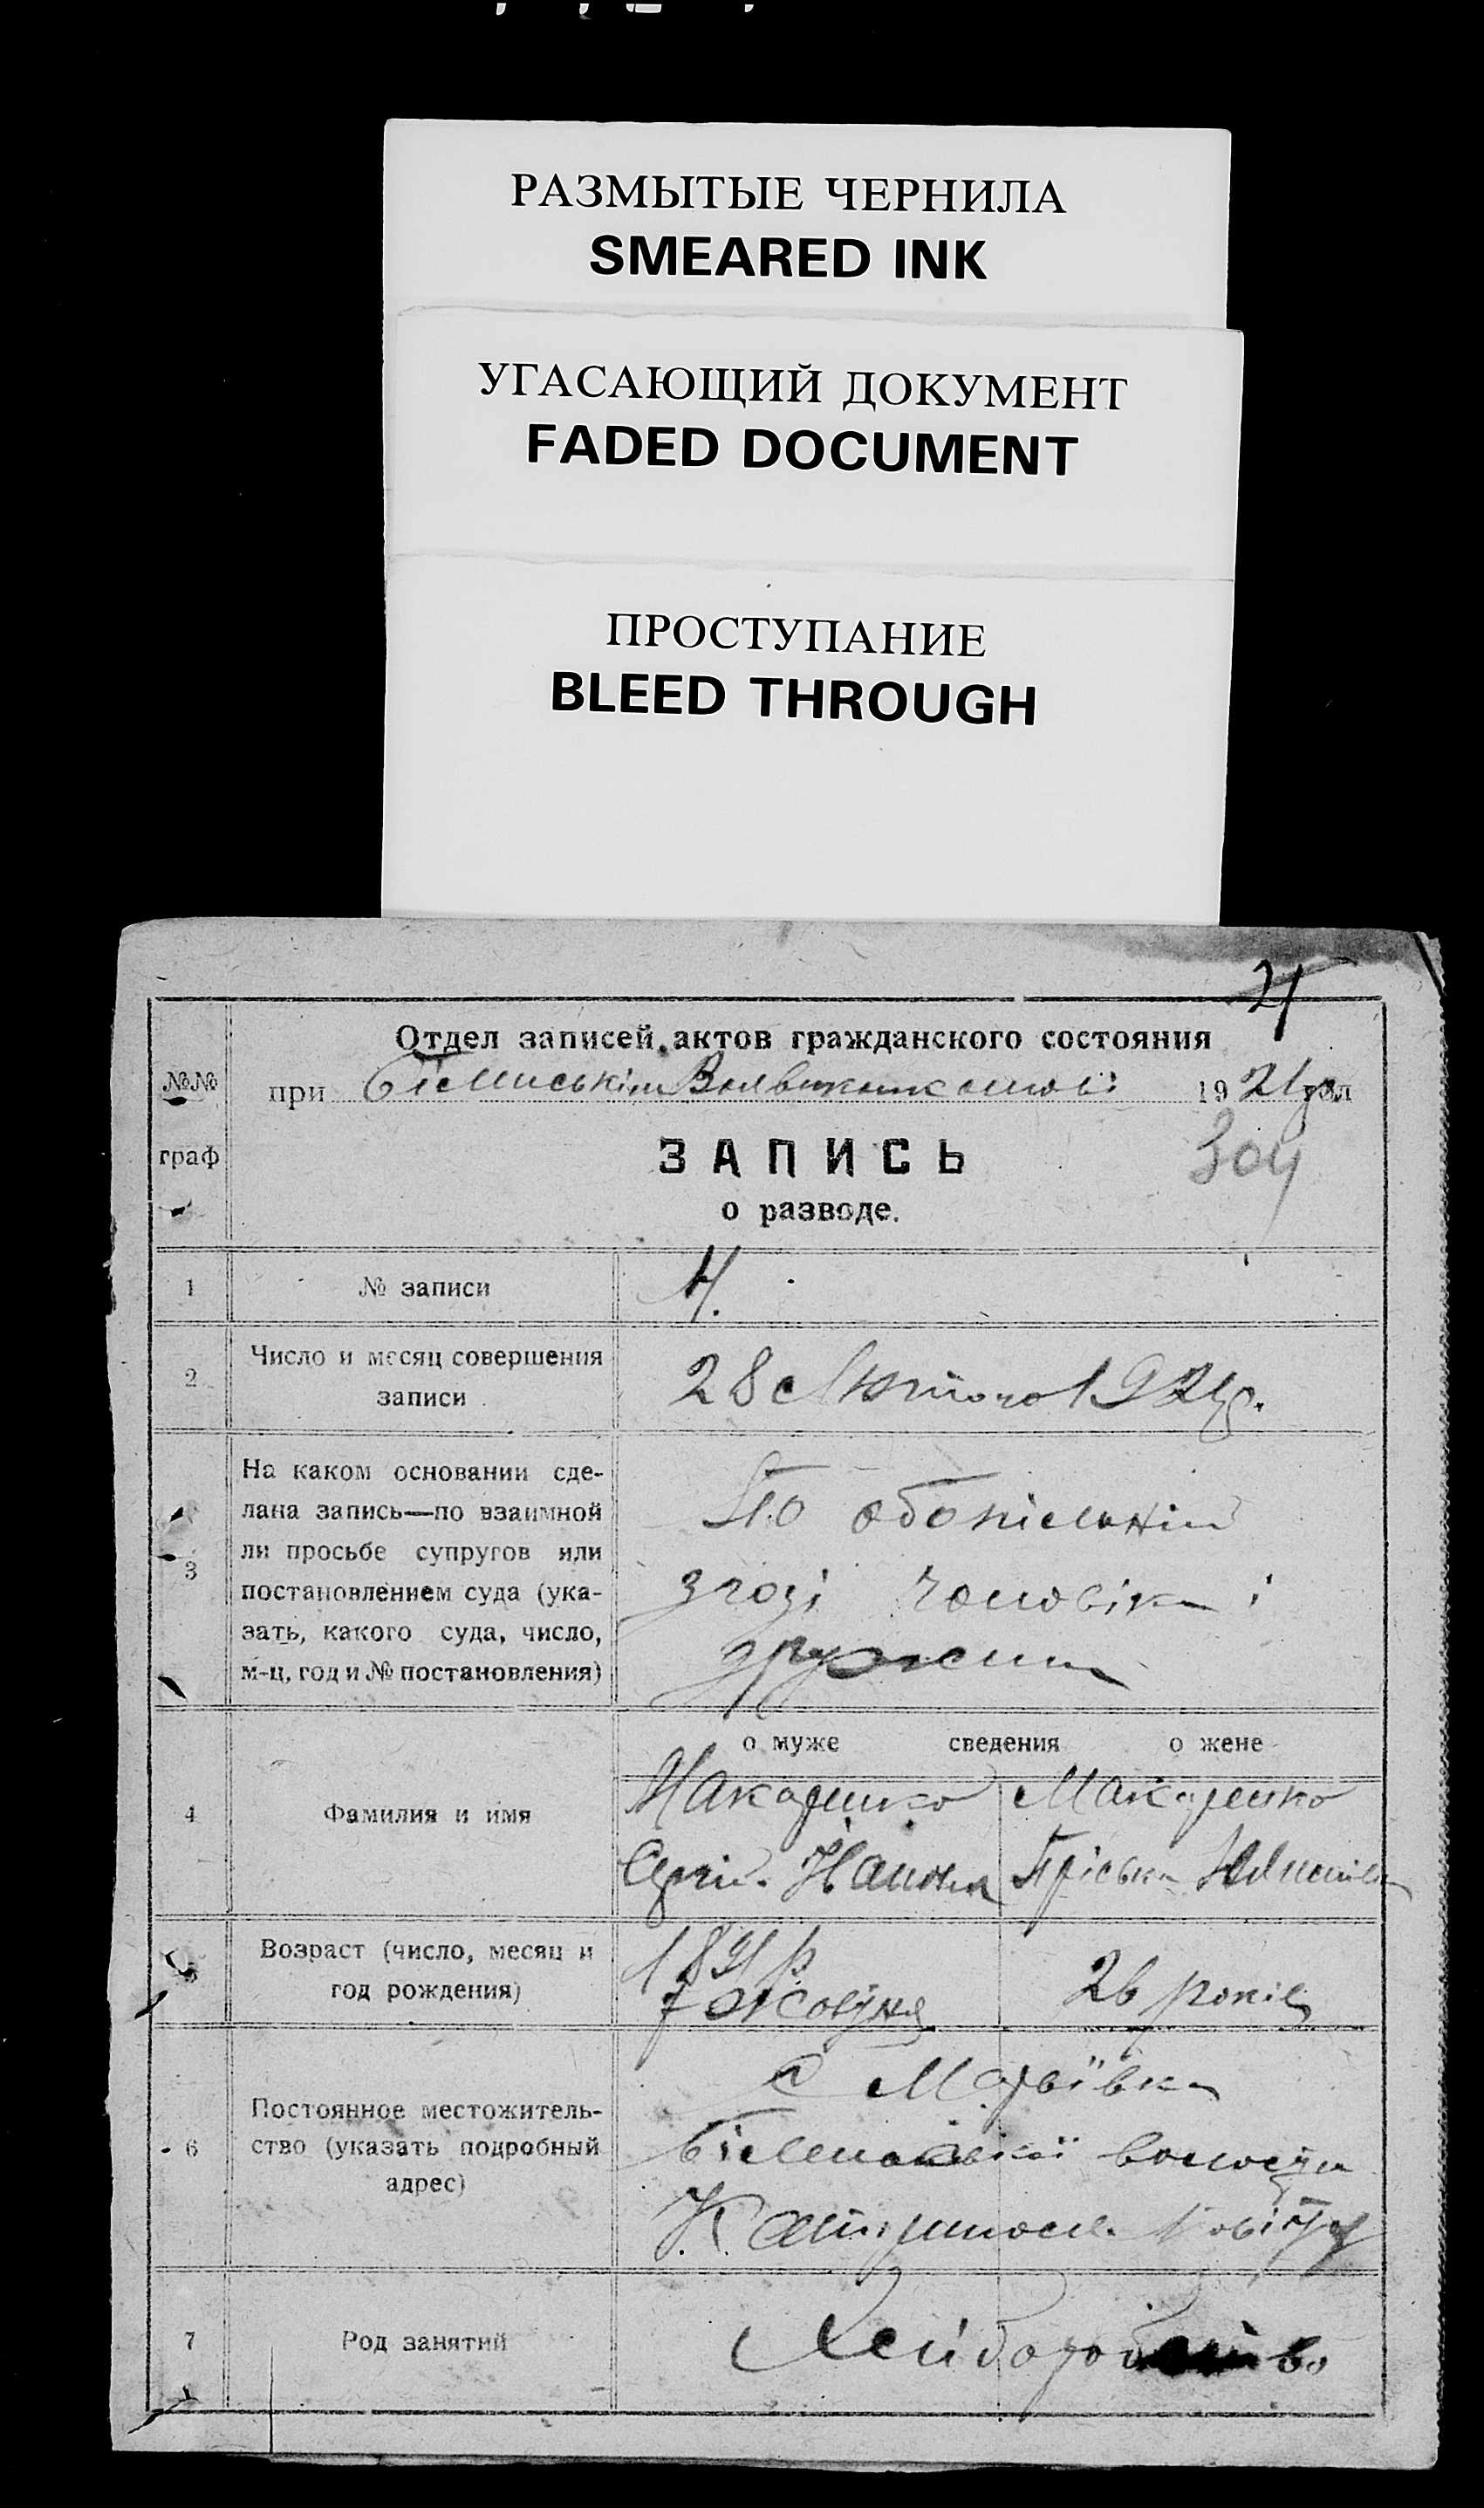 РАЗМЫТЫЕ ЧЕРНИЛА
SMEARED INK
УГАСАЮЩИЙ ДОКУМЕНТ
FADED DOCUMENT
ПРОСТУПАНИЕ
BLEED THROUGH
Отдел записей актов гражданского состояния
№№
при 1921 р.
граф
ЗАПИСЬ
304
о разводе.
1 № записи 4.
2 Число и месяц совершения
записи
28 Лютого 1921 р.
3 На каком основании сде-
лана запись—по взаимной
ли просьбе супругов или
постановлением суда (ука-
зать, какого суда, число,
м-ц, год и № постановления)
По обопільній
згоді чоловіка і
дружини
о муже сведения о жене
4 Фамилия и имя
Макаренко Макаренко
Сергій Пріська
Возраст (число, месяц и
год рождения)
р.
7 Жовтня
26 років
6 Постоянное местожитель-
ство (указать подробный
адрес)
с Мар'ївка
волости
Катериносл. Повіту
7 Род занятий
Хліборобство